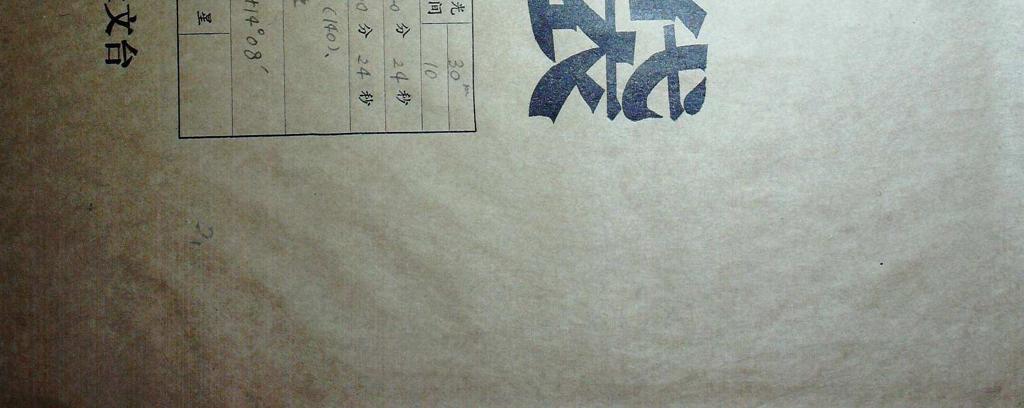 袋
光 30m
间 10
0 分 24 秒
0 分 24 秒
(140)、
+14°08′
星
文台